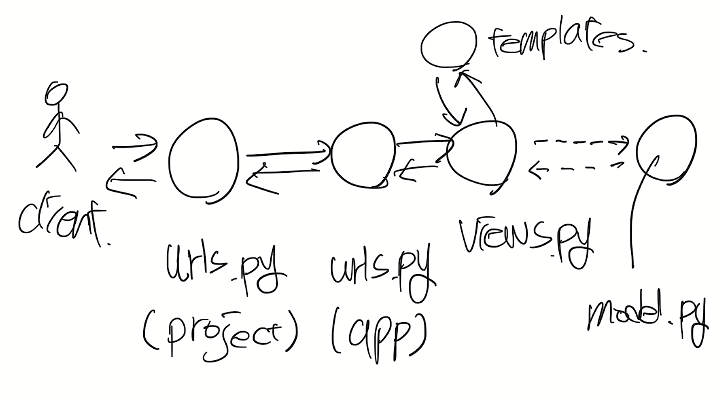 templates.
client.
urls.py
(project)
urls.py
(app)
views.py
model.py